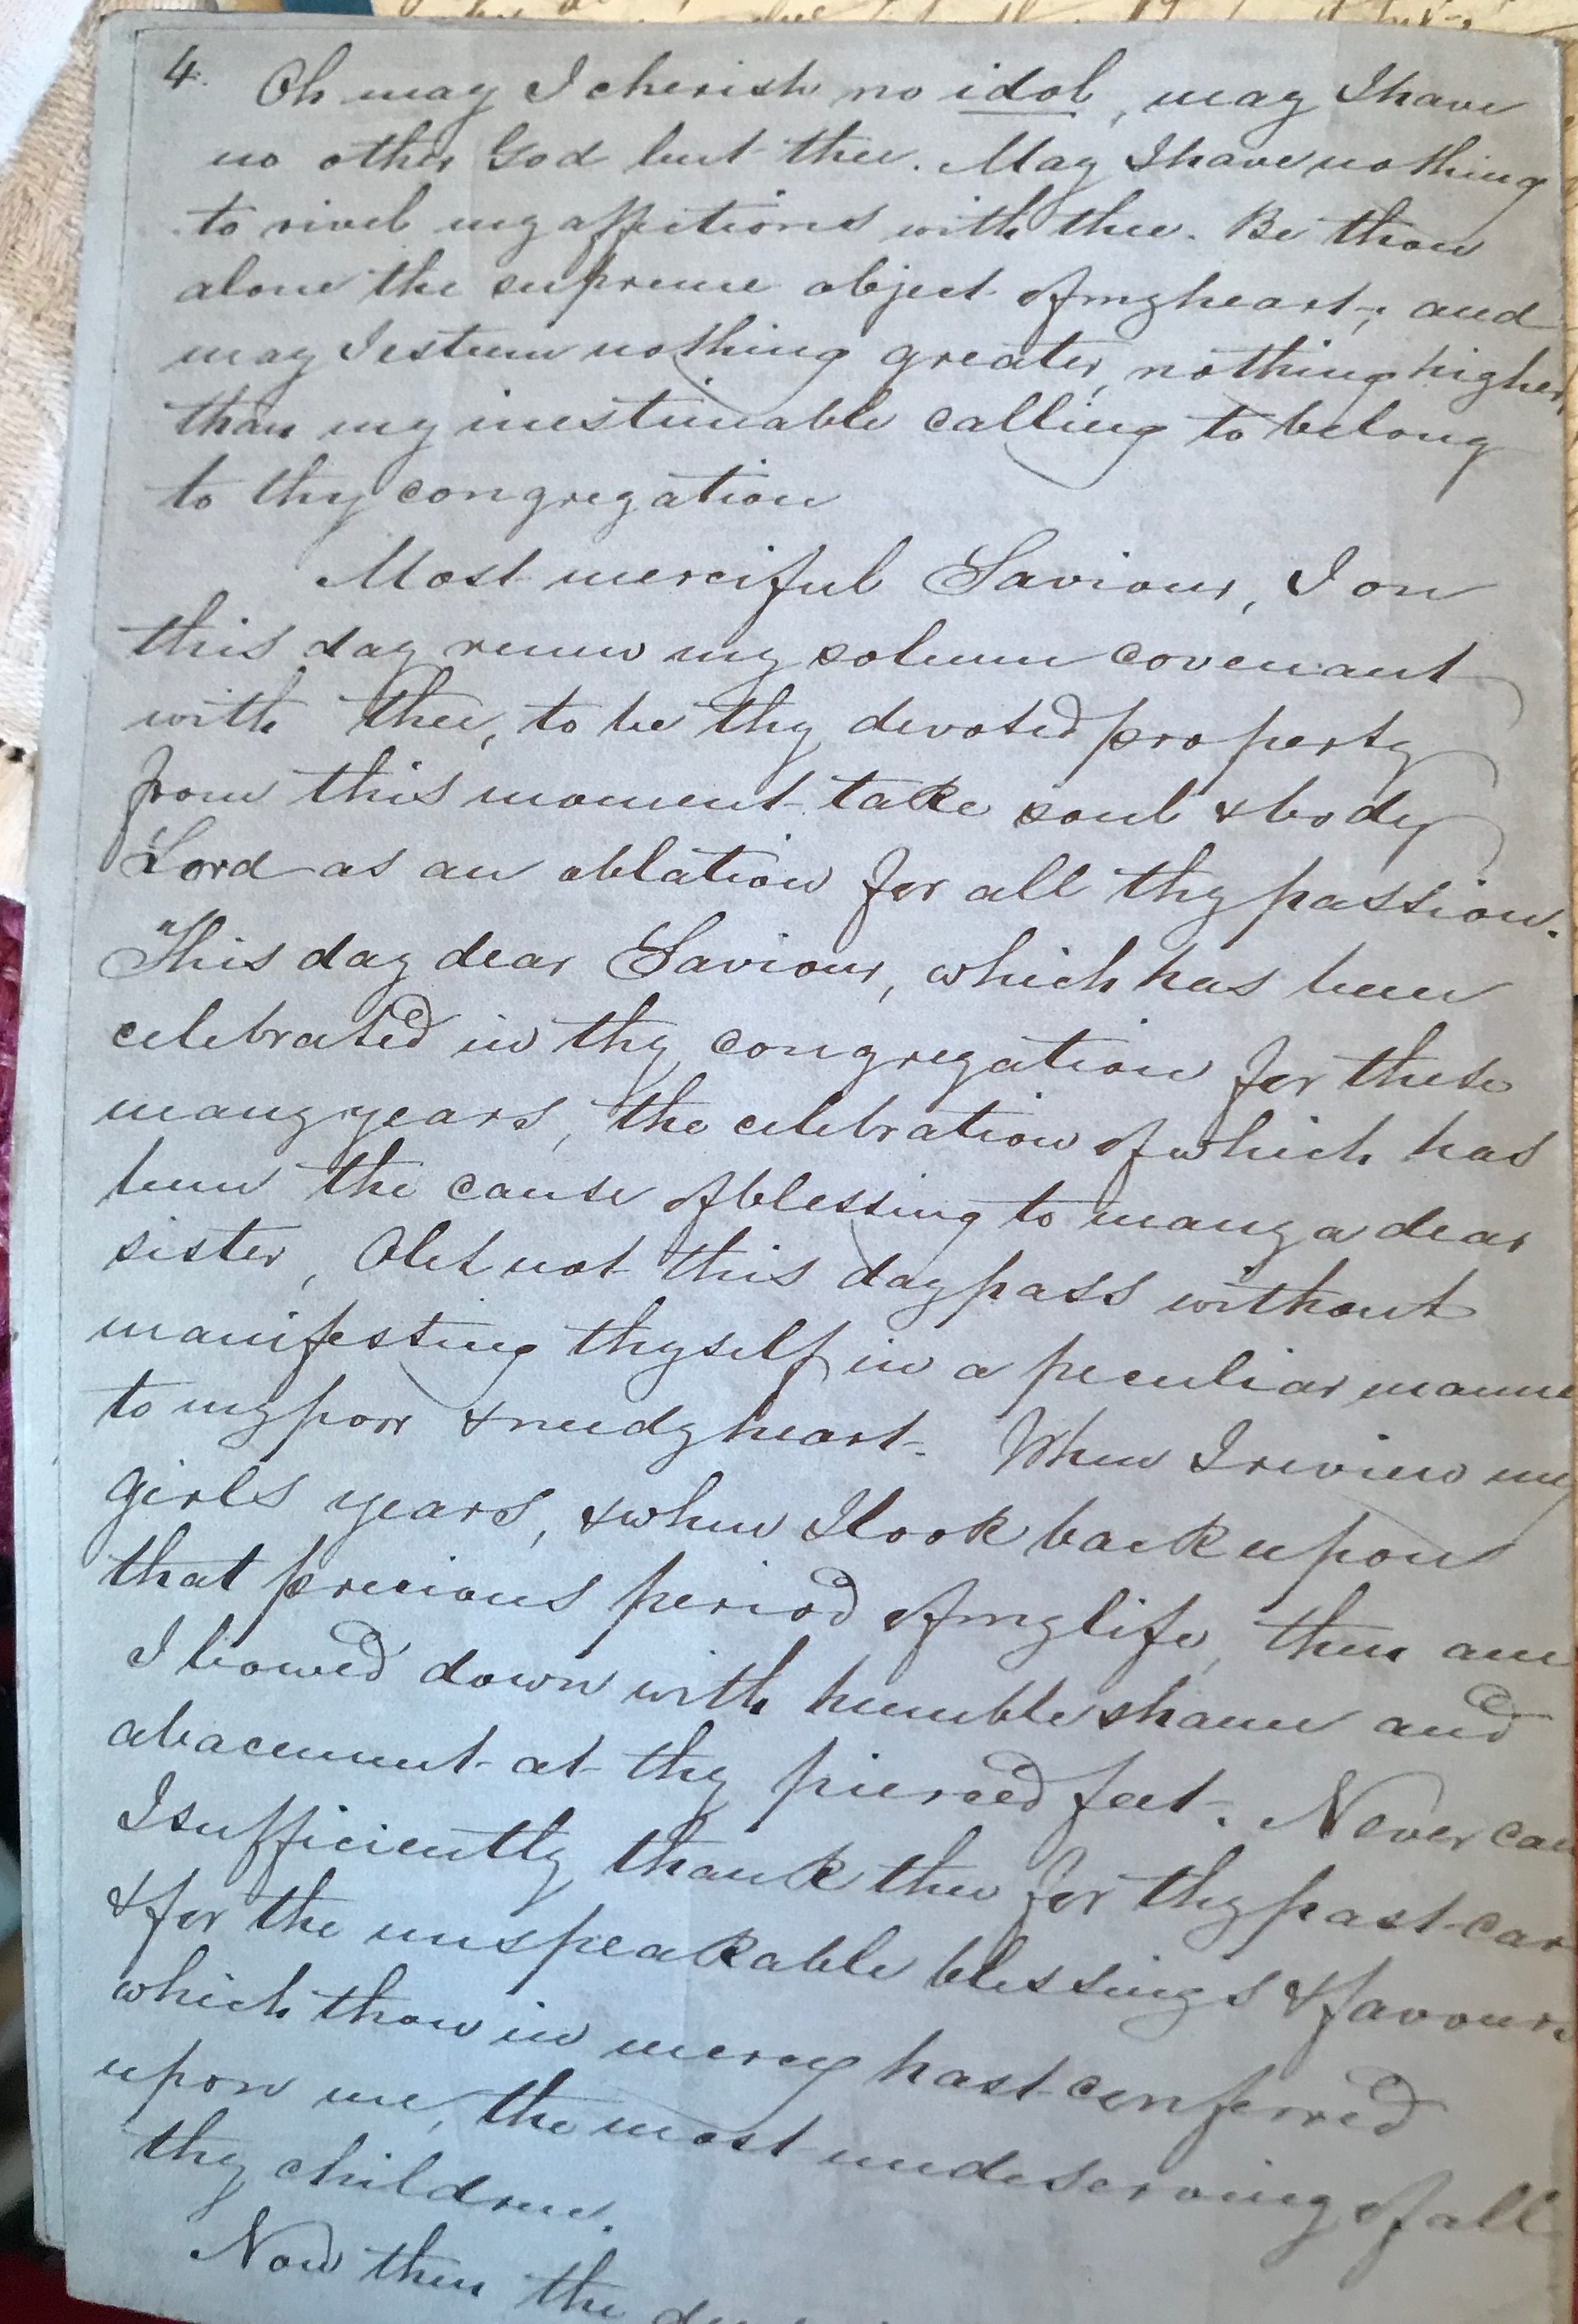 4. Oh may I cherish no idol, may I have
no other God but thee. May I have nothing
to rivel my affections with thee. Be thou
alone the supreme object of my heart; and
may I esteem nothing greater, nothing higher,
than my inestimable calling to belong
to thy congregation
Most merciful Saviour, I on
this day renew my solemn covenant
with thee, to be thy devoted property
from this moment take soul & body
Lord as an oblation for all thy passion.
This day dear Saviour, which has been
celebrated in thy congregation for these
many years, the celebration of which has
been the cause of blessing to many a dear
sister, O let not this day pass without
manifesting thyself in a peculiar manne
to my poor & needy heart. When I review my
girls years, & when I look back upon
that precious period of my life, then am
I bowed down with humble shame and
abacement at thy pierced feet. Never can
I sufficiently thank thee for thy past car
& for the unspeakable blessings & favours
which thou in mercy hast conferred
upon me, the most undeserving of all
thy children.
Now then the